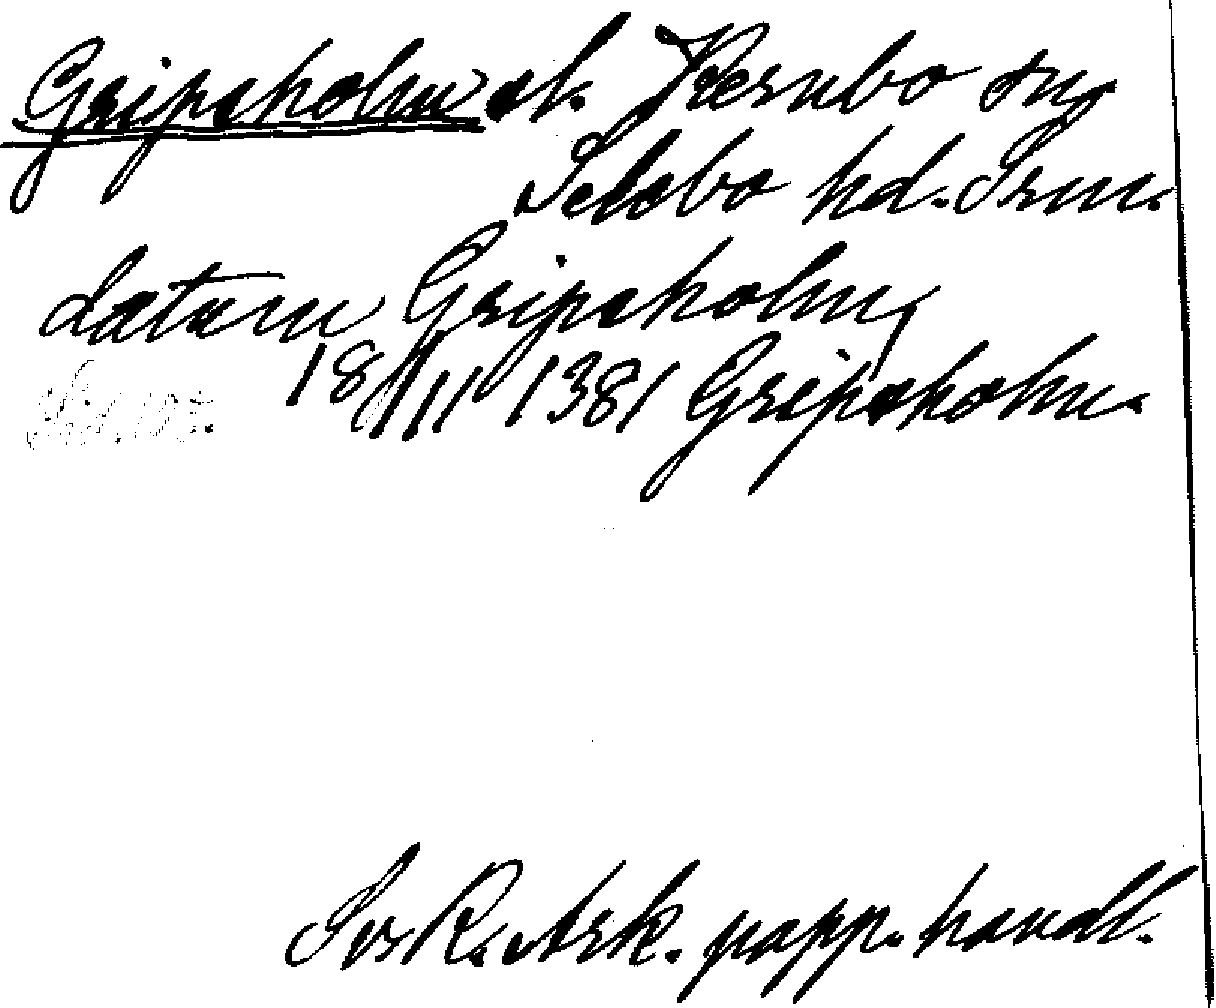 Gripsholm sl. Kärnbo sn,
Selebo hd. Srm.
datum Gripsholm,
18/11 1381 Gripsholm.
Sv R. Ark. papp. handl.